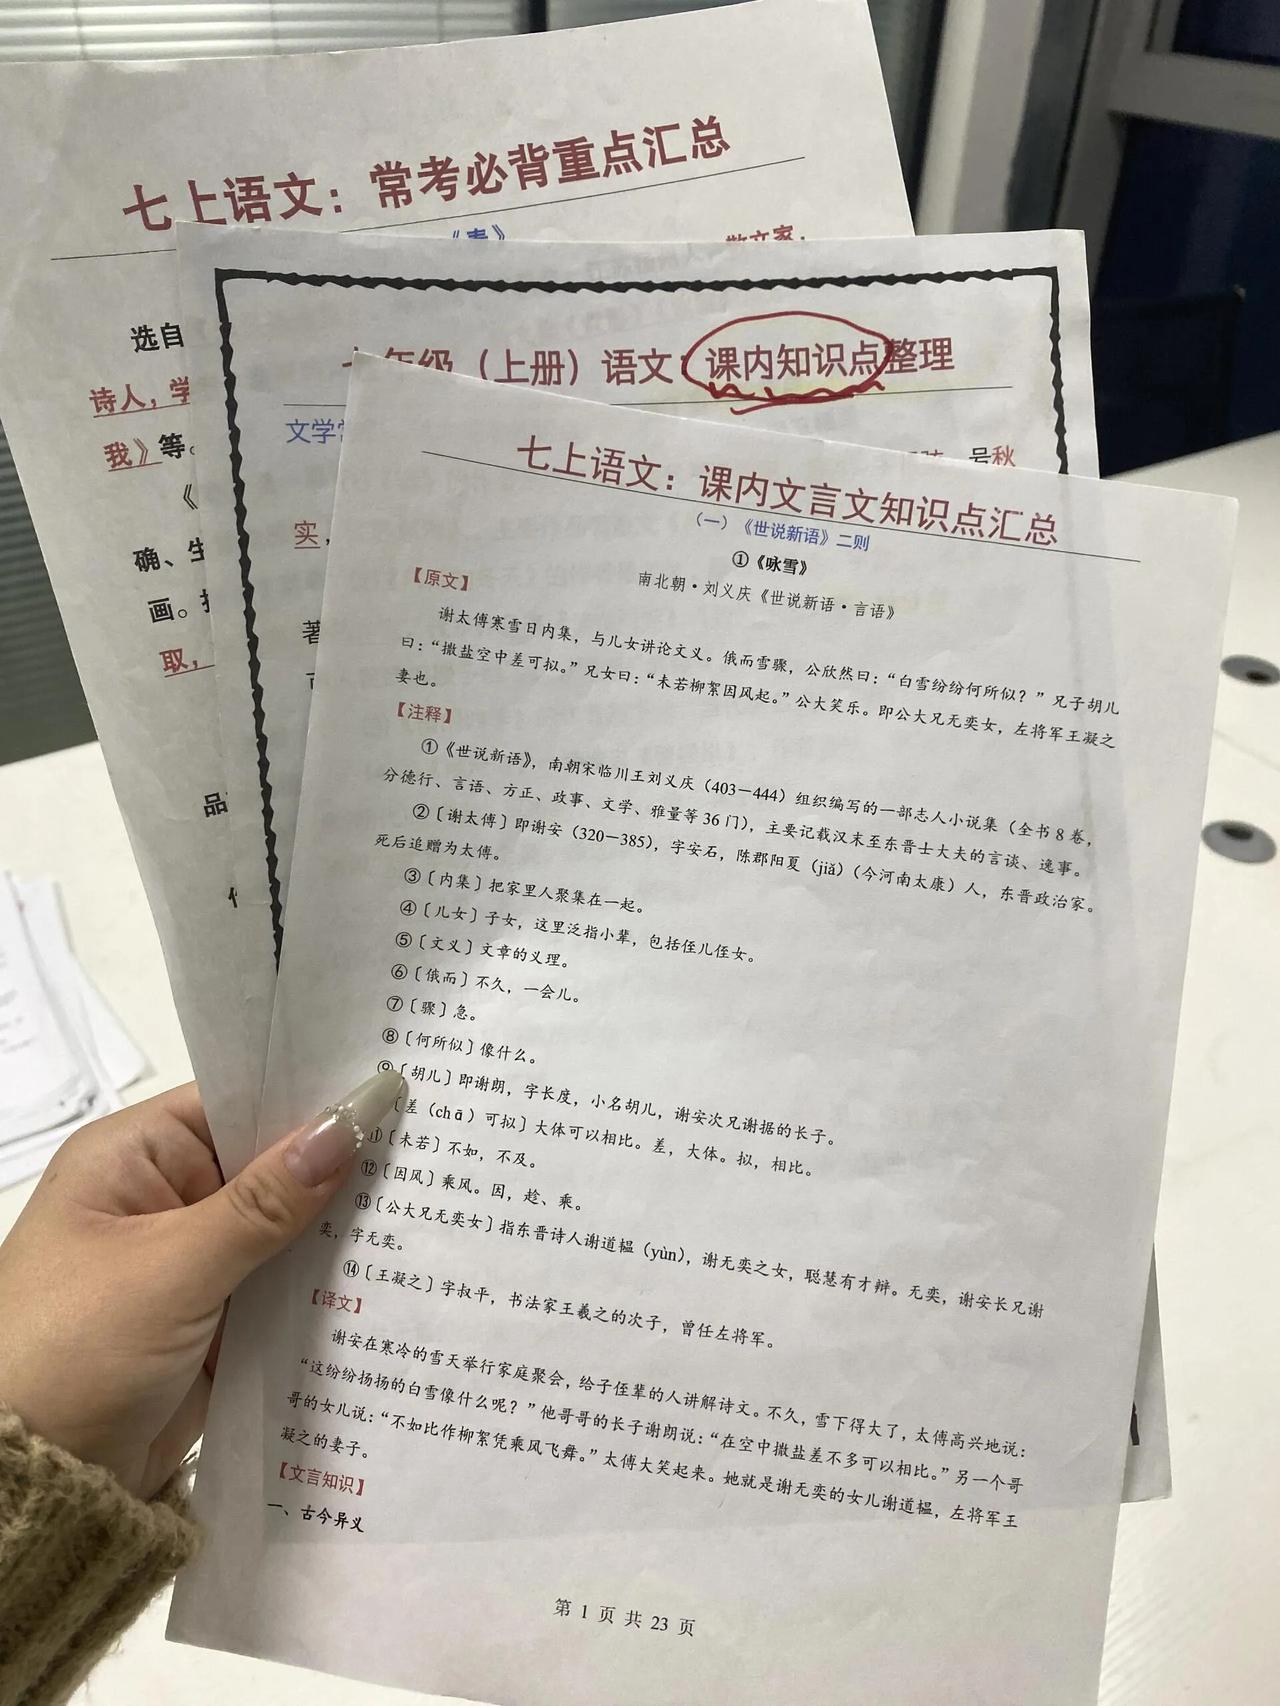 七上语文：常考必背重点汇总
《春》
散文家，
选自
诗人，学
我》等。
《
确、生
画。
取，
品
七年级（上册）语文：课内知识点整理
文学常
号秋
实，
著
七上语文：课内文言文知识点汇总
（一）《世说新语》二则
①《咏雪》
南北朝·刘义庆《世说新语·言语》
【原文】
谢太傅寒雪日内集，与儿女讲论文义。俄而雪骤，公欣然曰：“白雪纷纷何所似？”兄子胡儿
曰：“撒盐空中差可拟。”兄女曰：“未若柳絮因风起。”公大笑乐。即公大兄无奕女，左将军王凝之
妻也。
【注释】
①《世说新语》，南朝宋临川王刘义庆（403—444）组织编写的一部志人小说集（全书8卷，
分德行、言语、方正、政事、文学、雅量等36门），主要记载汉末至东晋士大夫的言谈、逸事。
②〔谢太傅〕即谢安（320—385），字安石，陈郡阳夏（jiǎ）（今河南太康）人，东晋政治家。
死后追赠为太傅。
③〔内集〕把家里人聚集在一起。
④〔儿女〕子女，这里泛指小辈，包括侄儿侄女。
⑤〔文义〕文章的义理。
⑥〔俄而〕不久，一会儿。
⑦〔骤〕急。
⑧〔何所似〕像什么。
⑨〔胡儿〕即谢朗，字长度，小名胡儿，谢安次兄谢据的长子。
〔差（chā）可拟〕大体可以相比。差，大体。拟，相比。
⑪〔未若〕不如，不及。
⑫〔因风〕乘风。因，趁、乘。
⑬〔公大兄无奕女〕指东晋诗人谢道韫（yùn），谢无奕之女，聪慧有才辩。无奕，谢安长兄谢
奕，字无奕。
⑭〔王凝之〕字叔平，书法家王羲之的次子，曾任左将军。
【译文】
谢安在寒冷的雪天举行家庭聚会，给子侄辈的人讲解诗文。不久，雪下得大了，太傅高兴地说：
“这纷纷扬扬的白雪像什么呢？”他哥哥的长子谢朗说：“在空中撒盐差不多可以相比。”另一个哥
哥的女儿说：“不如比作柳絮凭乘风飞舞。”太傅大笑起来。她就是谢无奕的女儿谢道韫，左将军王
凝之的妻子。
【文言知识】
一、古今异义
第 1 页 共 23 页